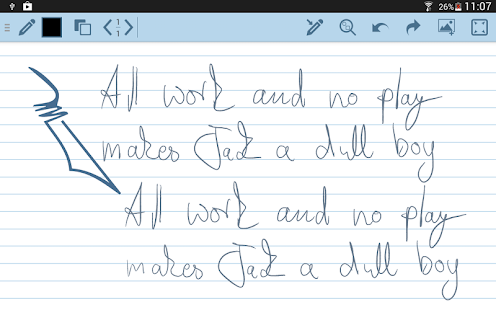 26% 11:07
1
1
All work and no play
makes Jack a dull boy
All work and no play
makes Jack a dull boy